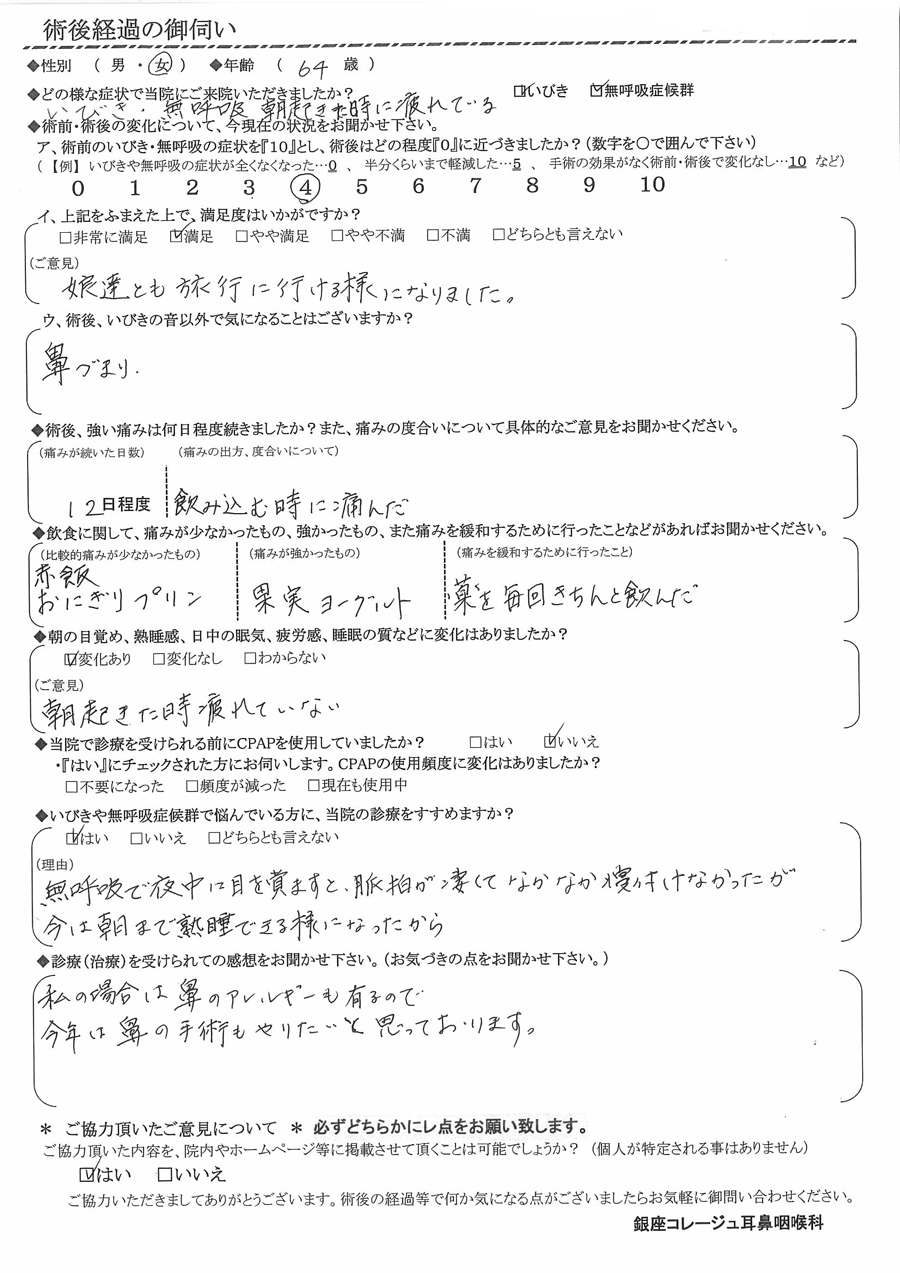 術後経過の御伺い
◆性別 ( 男 ・ 女 ) ◆年齢 ( 64 歳 )
◆どの様な症状で当院にご来院いただきましたか? ☑いびき ☑無呼吸症候群
いびき・無呼吸 朝起きた時に疲れている
◆術前・術後の変化について、今現在の状況をお聞かせ下さい。
ア、術前のいびき・無呼吸の症状を『10』とし、術後はどの程度『0』に近づきましたか?(数字を○で囲んで下さい)
(【例】 いびきや無呼吸の症状が全くなくなった…0 、 半分くらいまで軽減した…5 、 手術の効果がなく術前・術後で変化なし…10 など)
0 1 2 3 ④ 5 6 7 8 9 10
イ、上記をふまえた上で、満足度はいかがですか?
□非常に満足 ☑満足 □やや満足 □やや不満 □不満 □どちらとも言えない
(ご意見)
娘達とも旅行に行ける様になりました。
ウ、術後、いびきの音以外で気になることはございますか?
鼻づまり.
◆術後、強い痛みは何日程度続きましたか?また、痛みの度合いについて具体的なご意見をお聞かせください。
(痛みが続いた日数) (痛みの出方、度合いについて)
12日程度 飲み込む時に痛んだ
◆飲食に関して、痛みが少なかったもの、強かったもの、また痛みを緩和するために行ったことなどがあればお聞かせください。
(比較的痛みが少なかったもの) (痛みが強かったもの) (痛みを緩和するために行ったこと)
赤飯
おにぎり プリン 果実 ヨーグルト 薬を毎回きちんと飲んだ
◆朝の目覚め、熟睡感、日中の眠気、疲労感、睡眠の質などに変化はありましたか?
☑変化あり □変化なし □わからない
(ご意見)
朝起きた時疲れていない
◆当院で診療を受けられる前にCPAPを使用していましたか? □はい ☑いいえ
・『はい』にチェックされた方にお伺いします。CPAPの使用頻度に変化はありましたか?
□不要になった □頻度が減った □現在も使用中
◆いびきや無呼吸症候群で悩んでいる方に、当院の診療をすすめますか?
☑はい □いいえ □どちらとも言えない
(理由)
無呼吸で夜中に目を覚ますと、脈拍が凄くてなかなか寝付けなかったが
今は朝まで熟睡できる様になったから
◆診療(治療)を受けられての感想をお聞かせ下さい。(お気づきの点をお聞かせ下さい。)
私の場合は鼻のアレルギーも有るので
今年は鼻の手術もやりたいと思っております。
* ご協力頂いたご意見について * 必ずどちらかにレ点をお願い致します。
ご協力頂いた内容を、院内やホームページ等に掲載させて頂くことは可能でしょうか? (個人が特定される事はありません)
☑はい □いいえ
ご協力いただきましてありがとうございます。術後の経過等で何か気になる点がございましたらお気軽に御問い合わせください。
銀座コレージュ耳鼻咽喉科